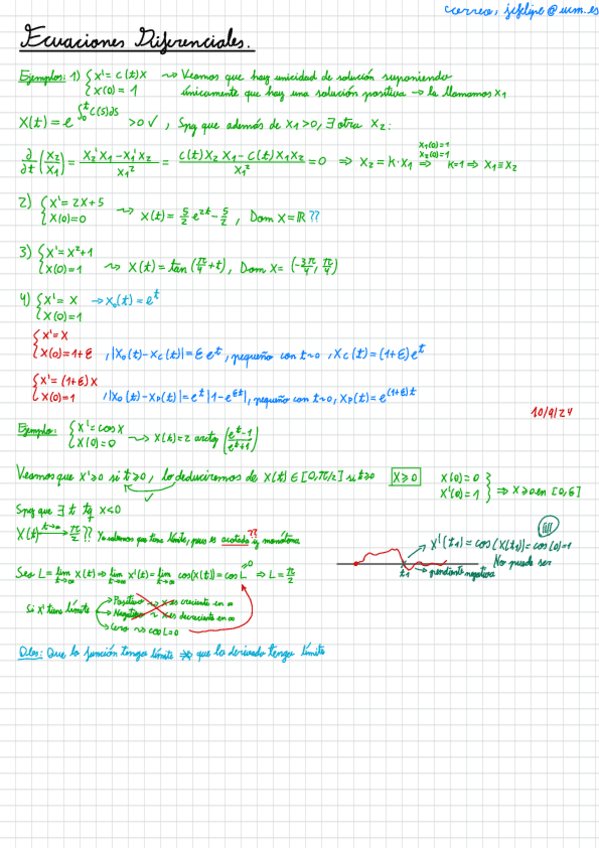 correo: jcfelipe@ucm.es
Ecuaciones Diferenciales.
Ejemplos: 1) { x' = c(t)x ⇝ Veamos que hay unicidad de solución suponiendo
x(0) = 1 únicamente que hay una solución positiva → la llamamos x₁
x(t) = e^{∫₀ᵗ c(s)ds} > 0 ✓, Spg que además de x₁>0, ∃ otra x₂:
∂/∂t (x₂/x₁) = (x₂'x₁ - x₁'x₂)/x₁² = (c(t)x₂x₁ - c(t)x₁x₂)/x₁² = 0 ⇒ x₂ = k·x₁ ⇒ (x₁(0)=1, x₂(0)=1) k=1 ⇒ x₁≡x₂
2) { x' = 2x+5
x(0)=0 ⇝ x(t) = 5/2 e^{2t} - 5/2, Dom x = ℝ ??
3) { x' = x²+1
x(0)=1 ⇝ x(t) = tan(π/4 + t), Dom x = (-3π/4, π/4)
4) { x' = x → x₀(t) = eᵗ
x(0)=1
{ x' = x
x(0)=1+ε, |x₀(t)-x_c(t)| = ε eᵗ, pequeño con t~0, x_c(t) = (1+ε)eᵗ
{ x' = (1+ε)x
x(0)=1, |x₀(t)-x_p(t)| = eᵗ|1-e^{εt}|, pequeño con t~0, x_p(t) = e^{(1+ε)t}
10/9/24
Ejemplo: { x' = cosx
x(0)=0 ⇝ x(t) = 2 arctg((eᵗ-1)/(eᵗ+1))
Veamos que x'≥0 si t≥0, lo deduciremos de x(t) ∈ [0,π/2] si t≥0 x≥0 x(0)=0
x'(0)=1 } ⇒ x≥0 en [0,δ]
✓
Spg que ∃ t tq x<0
x(t) →(t→∞) π/2 ?? Ya sabemos que tiene límite, pues es acotada ?? y monótona
x'(t₁) = cos(x(t₁)) = cos(0) = 1
No puede ser
t₁ pendiente negativa
Sea L = lim_{t→∞} x(t) ⇒ lim_{t→∞} x'(t) = lim_{t→∞} cos(x(t)) = cos L =0 ⇒ L = π/2
Si x' tiene límite
Positivo ⇝ x es creciente en ∞
Negativo ⇝ x es decreciente en ∞
Cero ⇝ cos L=0
Obs: Que la función tenga límite ⇏ que la derivada tenga límite